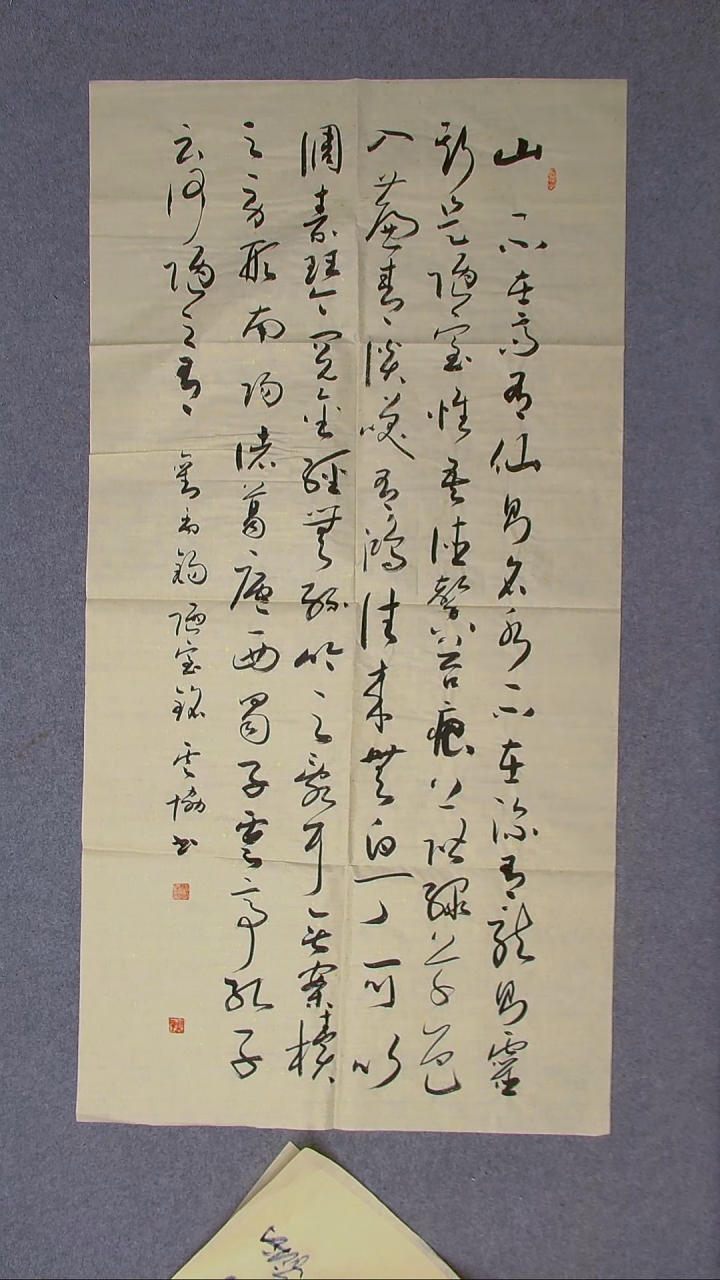 山不在高有仙則名水不在深有龍則靈
斯是陋室惟吾德馨苔痕上階綠草色
入簾青談咲有鴻往來無白丁可以
調素琴閱金經無絲竹之亂耳無案牘
之勞形南陽諸葛廬西蜀子雲亭孔子
云何陋之有 劉禹錫陋室銘 協書